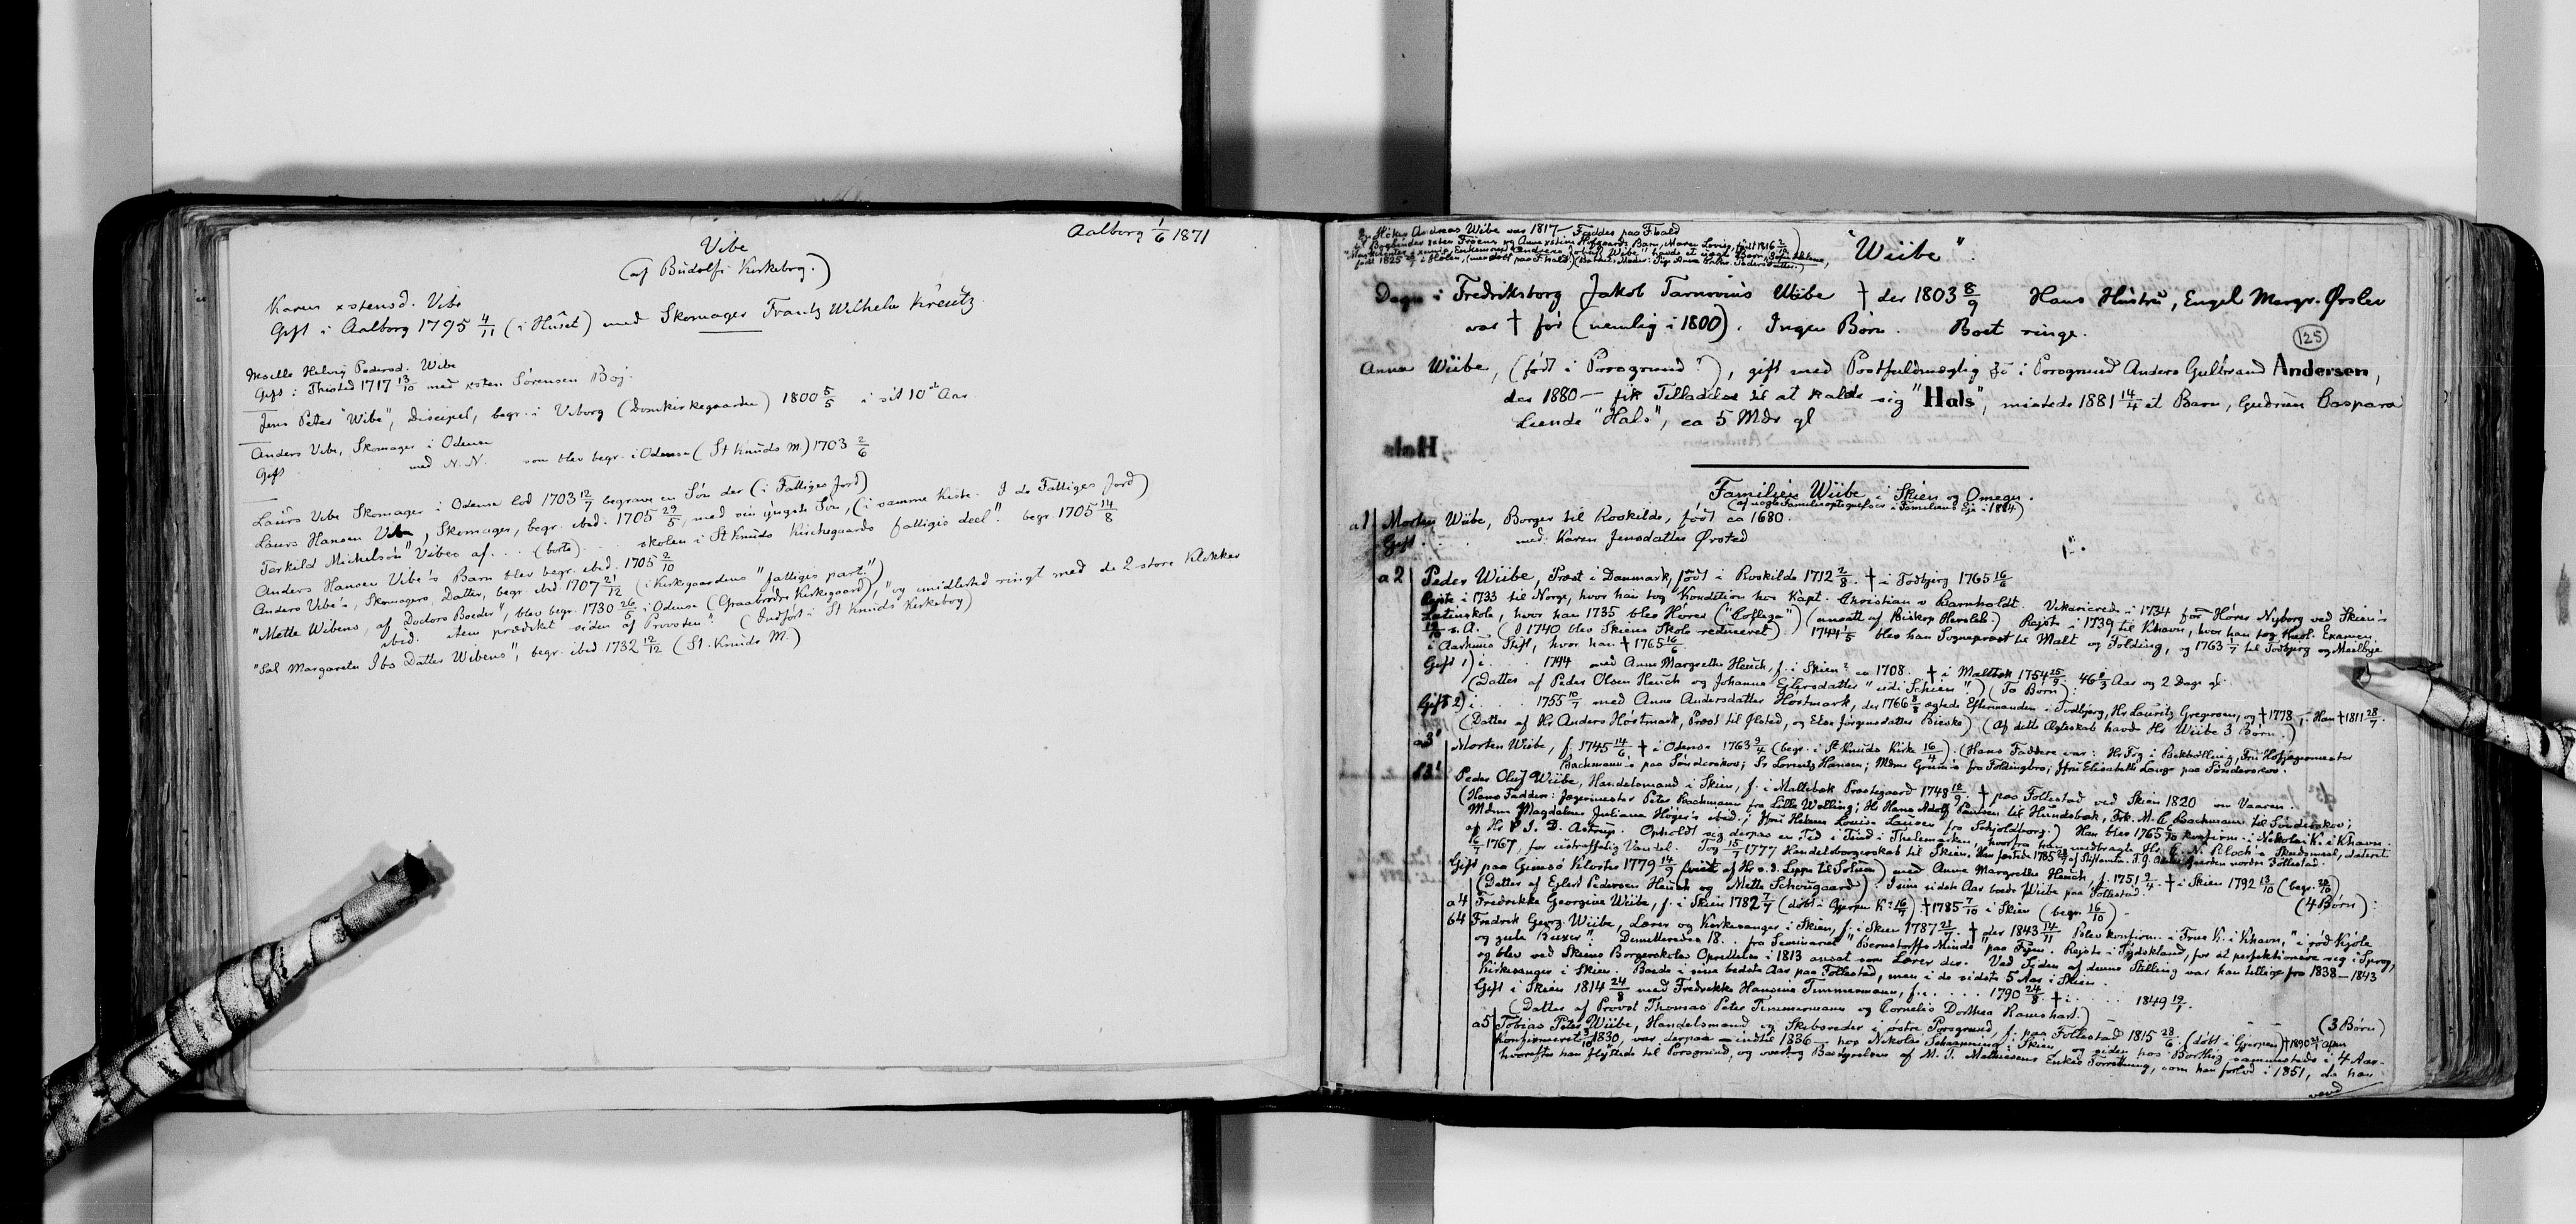 Aalborg 1/6 1871
Vibe
(af Budolfi Kirkebog.)
Karen xstensd. Vibe
Gift i Aalborg 1795 4/11 (i Huset) med Skomager Frantz Wilhelm Kreutz.
Mesille Helvig Pedersd. Wibe
Gift i Thisted 1717 13/10 med xsten Sørensen Boj.
Jens Peter "Wibe", Discipel, begr. i Viborg (Domkirkegaarden) 1800 5/5 i sit 10de Aar
Anders Vibe, Skomager i Odense
Gift med N.N. som blev begr. i Odense (St Knuds M.) 1703 2/6
Laurs Vibe Skomager i Odense lod 1703 12/7 begrave en Søn der (i Fattiges Jord)
Laurs Hansen Vibe, Skomager, begr. ibid. 1705 29/5, med sin yngste Søn, (i samme Kiste. I de Fattiges Jord)
Terkild Michelsøn "Vibes af... (borte)... skolen i St Knuds Kirchegaards fattiges deel". begr 1705 14/8
Anders Hansen Vibe's Barn blev begr. ibid. 1705 2/10
Anders Vibe's, Skomagers, Datter, begr ibid 1707 21/12 (i Kirkegaardens "fattiges part.")
"Mette Wibens, af Doctors Boeder", blev begr. 1730 26/5 i Odense (Graabrødre Kirkegaard), "og imidlertid ringt med de 2 store Klokker
ibid. item prædiket siden af Provsten". (Indført i St Knuds Kirkebog)
"Sal Margarete Ibs Datter Wibens", begr. ibid 1732 12/12 (St. Knuds M.)
En Høker Andreas Wibe var 1817 Fadder paa Fhald
"Wiibe".
Degn i Fredriksborg Jakob Tarnovius Wiibe † der 1803 8/9 Hans Hustru, Engel Margr. Ørslev
var † før (nemlig i 1800). Ingen Børn. Boet ringe.
125
Anna Wiibe, (født i Porsgrund?), gift med Postfuldmægtig i Porsgrund Anders Gulbrand Andersen,
der 1880 fik Tilladelse til at kalde sig "Hals", mistede 1881 14/4 et Barn, Gudrun Caspara
Leende "Hals", ca 5 Mdr gl
Hals
Familien Wiibe i Skien og Omegn.
(af nogle Familieoptegnelser i Familiens Eje i 1884)
a1 Morten Wiibe, Borger til Roskilde, født ca 1680.
Gift... med Karen Jensdatter Ørsted
a2 Peder Wiibe, Præst i Danmark, født i Roskilde 1712 2/8. † i Todbjerg 1765 16/6
Rejste i 1733 til Norge, hvor han tog Kondition hos Kapt. Christian v Barnholdt. Vikarierede i 1734 for Hører Nyborg ved Skien's
Latinskole, hvor han 1735 blev Hører ("Collega") (ansatt af Biskop Hersleb.) Rejste i 1739 til Khavn, hvor han tog theol. Examen
s. A. I 1740 blev Skiens Skole reduceret). 1744 1/5 blev han Sognepræst til Malt og Folding, og 1763 7/7 til Todbjerg og Mejlby
i Aarhuus Stift, hvor han † 1765 16/6
Gift 1) i... 1744 med Anne Margrethe Heuch, f. i Skien? ca 1708. † i Maltbæk 1754 15/9. 46 2/3 Aar og 2 Dage gl.
(Datter af Peder Olsen Heuch og Johanne Ejlersdatter "udi Schien".) (To Børn):
Gift 2) i... 1755 10/7 med Anne Andersdatter Hostmark, der 1766 8/8 ægtede Eftermanden i Todbjerg, Hr Lauritz Gregersen, og † 1778. Han † 1811 28/7.
(Datter af Hr Anders Hostmark, Præst til Ølsted, og Else Jørgensdatter Bieske) (Af dette Ægteskab havde Hr Wiibe 3 Børn.)
a3 Morten Wiibe, f. 1745 14/6 † i Odense 1763 9/4 (begr. i St Knuds Kirke 16/4). (Hans Faddere var: Hr Fog i Bekbølling; Fru Hofjægermester
Bachmann's paa Sønderskov; Sr Lorentz Hansen; Mdme Grüm's fra Foldingbro; Jfru Elisabeth Lange paa Sønderskov.
b3 Peder Oluf Wiibe, Handelsmand i Skien, f. i Maltbæk Præstegaard 1748 12/9. † paa Follestad ved Skien 1820 om Vaaren.
(Hans Faddere: Jægermester Peter Bachmann fra Lille Wolling; Hr Hans Adolf Paulsen til Hundsbæk, Frk. M. C. Bachmann til Sønderskov;
Mdme Magdalene Juliane Høyer's ibid.; Jfru Helene Louise Lausen fra Schjoldborg.) Han blev 1765 konfirm. i Nikolai K. i Khavn.
af Hr P. J. D. Astrup. Opholdt sig derpaa en Tid i Tind i Thelemarken, hvorfra han medbragte Hr. C. N. Bloch's Skudsmaal, dateret
16/7 1767, for ustraffelig Vandel. Tog 15/7 1777 Handelsborgerskab til Skien.
Gift paa Gimsø Kloster 1779 14/9 (viet af Hr v. d. Lippe til Solum) med Anne Margrethe Heuch, f. 1751 2/4. † i Skien 1792 13/10 (begr. 20/10)
(Datter af Eylert Pedersen Heuch og Mette Schougaard). I sine sidste Aar boede Wiibe paa Follestad. (4 Børn):
a4 Fredrikke Georgine Wiibe, f. i Skien 1782 7/7 (døbt i Gjerpen K. 16/7). † 1785 7/10 i Skien (begr. 16/10)
b4 Fredrik Georg Wiibe, Lærer og Kirkesanger i Skien, f. i Skien 1787 21/7. † der 1843 14/11 Blev konfirm. i Frue K. i Khavn, "i rød Kjole
og gule Buxer". Dimitteredes 18.. fra Seminariet "Bernstorffs Minde" paa Fyen. Rejste i Tydskland, for at perfektionere sig i Sprog,
og blev ved Skiens Borgerskoles Oprettelse i 1813 ansat som Lærer der. Ved Siden af denne Stilling var han tillige fra 1838–1843
Kirkesanger i Skien. Boede i sine bedste Aar paa Follestad, men i de sidste 5 Aar i Skien.
Gift i Skien 1814 24/8 med Fredrikke Hansine Timmermann, f. i.... 1790 24/8. † i..... 1849 19/1.
(Datter af Provst Thomas Peter Timmermann og Cornelie Dorthea Ramshart.) (3 Børn)
a5 Tobias Peter Wiibe, Handelsmand og Skibsreder i østre Porsgrund, f. paa Follestad 1815 28/6 (døbt i Gjerpen)
konfirmeret 1830, var derpaa indtil 1836 hos Nikolai Schanning i Skien og siden hos Borthig sammesteds i 4 Aar.
hvorefter han flyttede til Porsgrund, og overtog Bestyrelsen af M. T. Mathiesens Enkes Forretning, som han forlod i 1851, da han
vend